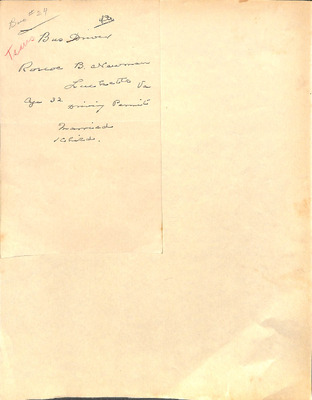 Bus #24
Bus Driver
Roscoe B. Newman
Va
Age 32 Driving Permit
Married
1 Child.